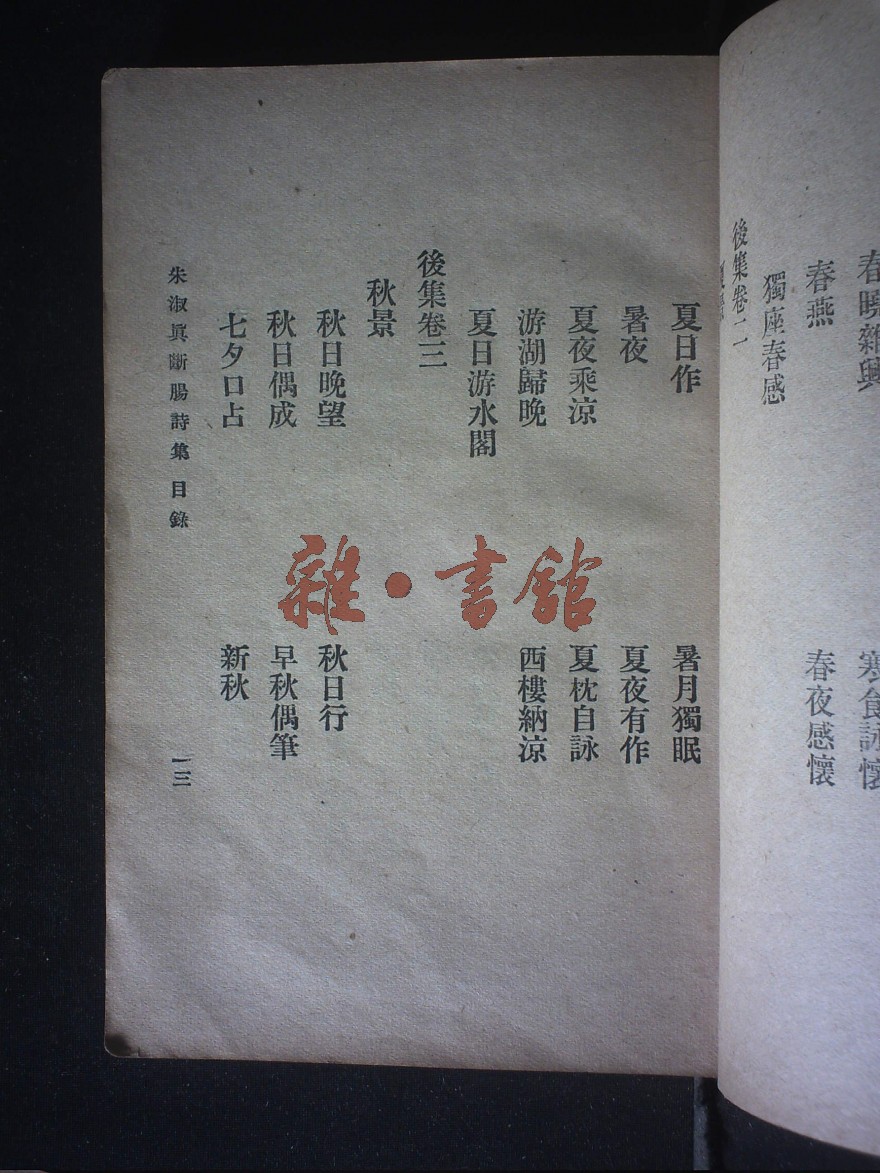 春曉雜興
寒食詠懷
春燕
春夜感懷
獨座春感
後集卷二
夏日作
暑月獨眠
暑夜
夏夜有作
夏夜乘涼
夏枕自詠
游湖歸晚
西樓納涼
夏日游水閣
後集卷三
秋景
秋日晚望
秋日行
秋日偶成
早秋偶筆
七夕口占
新秋
朱淑眞斷腸詩集 目錄
一三
雜·書館